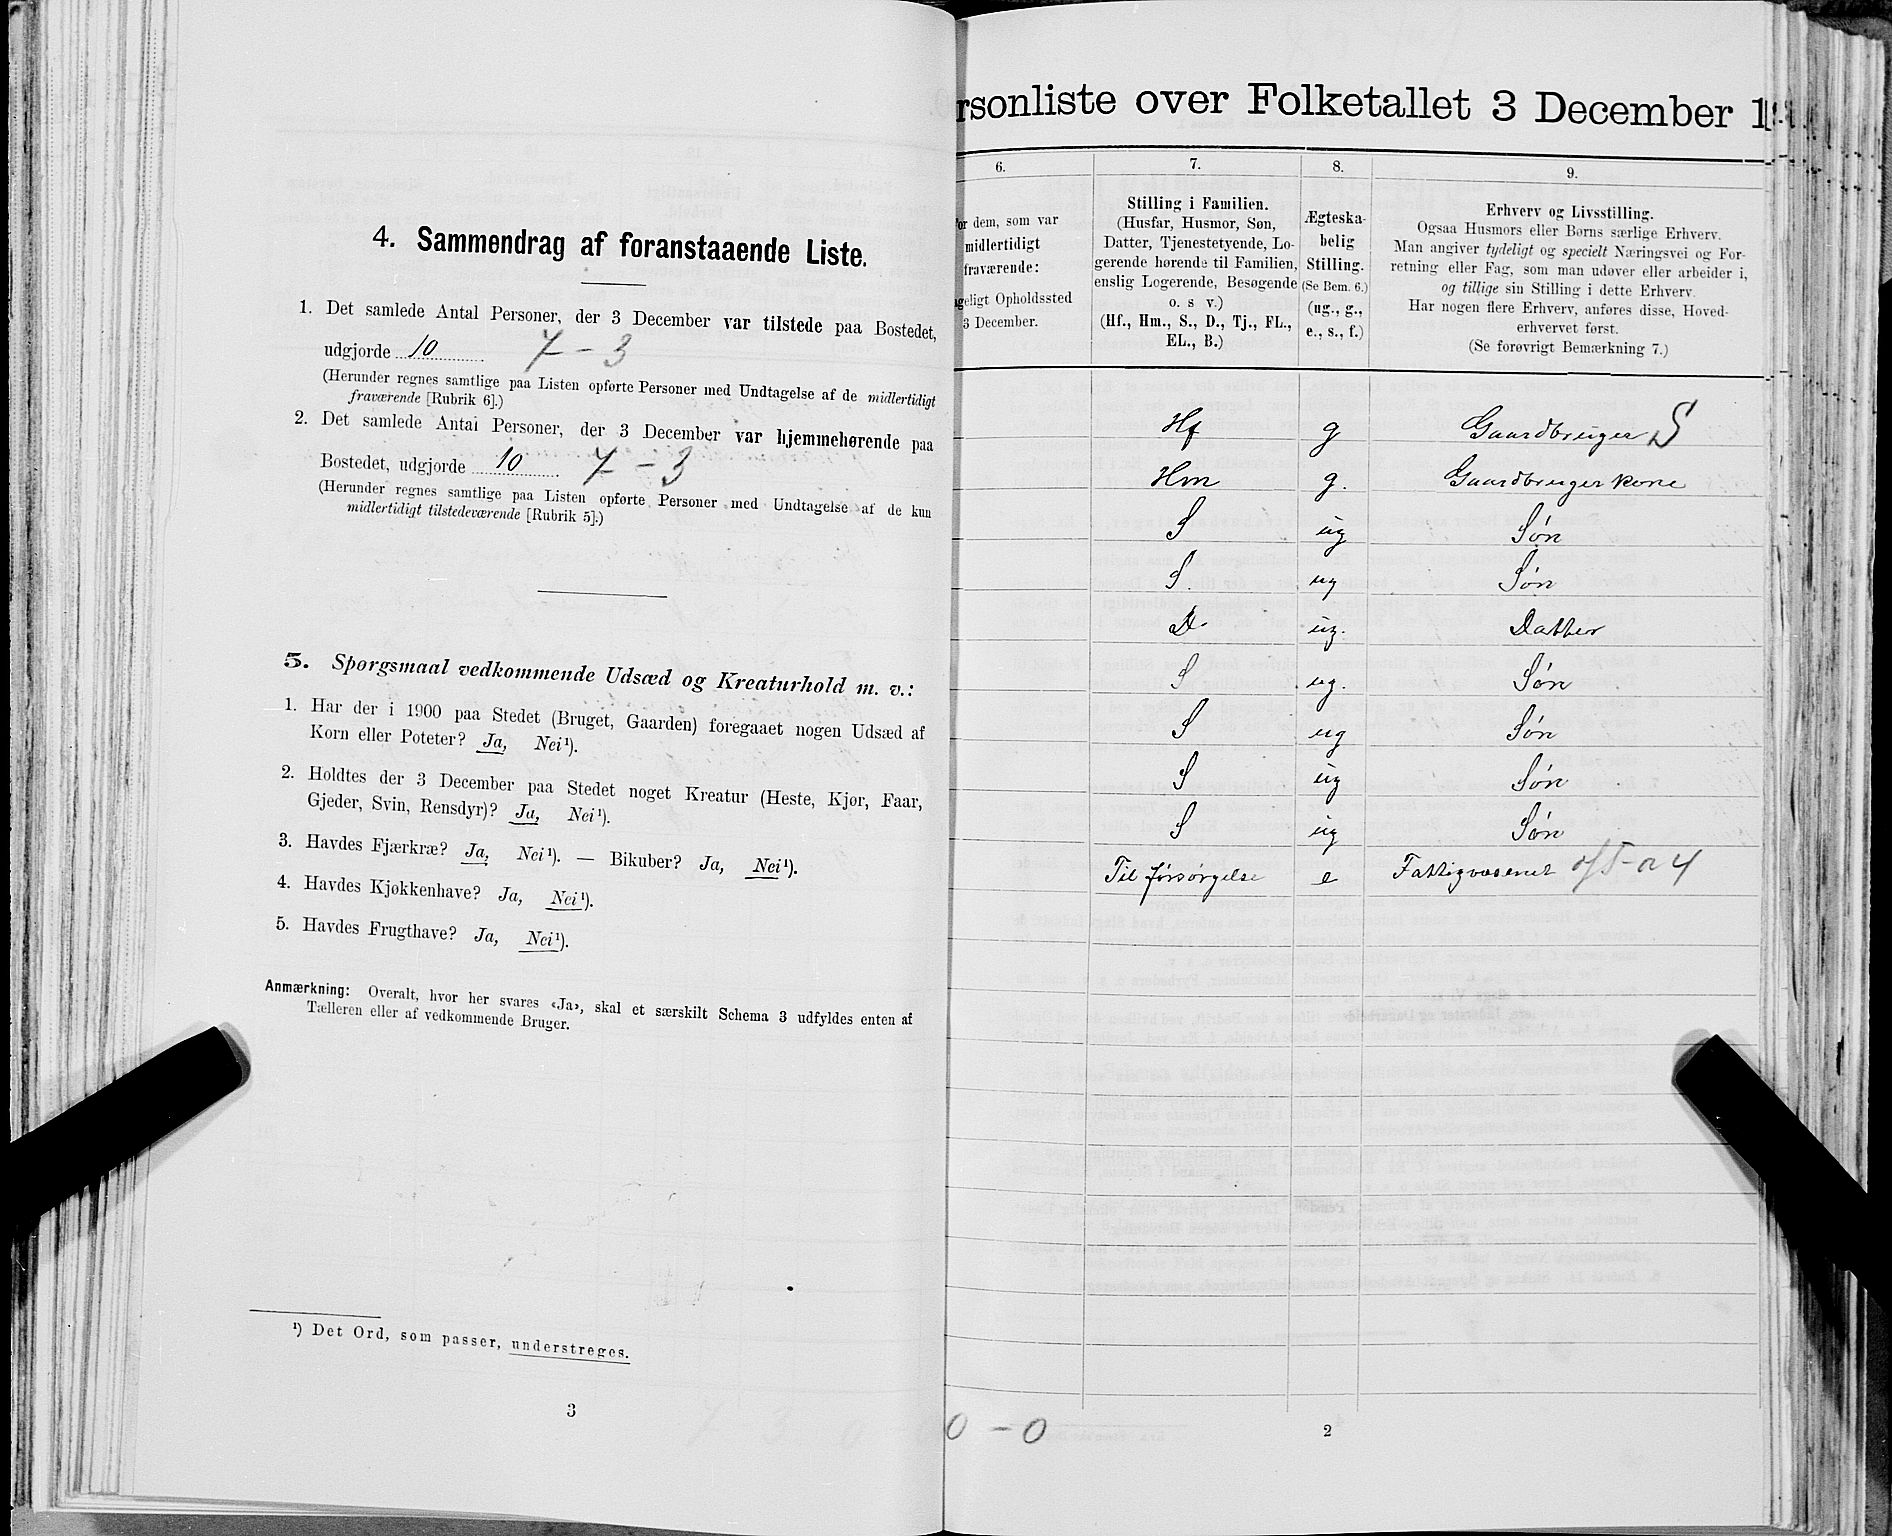 4. Sammendrag af foranstaaende Liste.
1. Det samlede Antal Personer, der 3 December var tilstede paa Bostedet,
udgjorde 10 7 - 3
(Herunder regnes samtlige paa Listen opførte Personer med Undtagelse af de midlertidigt
fraværende [Rubrik 6].)
2. Det samlede Antal Personer, der 3 December var hjemmehørende paa
Bostedet, udgjorde 10 7 - 3
(Herunder regnes samtlige paa Listen opførte Personer med Undtagelse af de kun
midlertidigt tilstedeværende [Rubrik 5].)
5. Spørgsmaal vedkommende Udsæd og Kreaturhold m. v.:
1. Har der i 1900 paa Stedet (Bruget, Gaarden) foregaaet nogen Udsæd af
Korn eller Poteter? Ja, Nei¹).
2. Holdtes der 3 December paa Stedet noget Kreatur (Heste, Kjør, Faar,
Gjeder, Svin, Rensdyr)? Ja, Nei¹).
3. Havdes Fjærkræ? Ja, Nei¹). — Bikuber? Ja, Nei¹).
4. Havdes Kjøkkenhave? Ja, Nei¹).
5. Havdes Frugthave? Ja, Nei¹).
Anmærkning: Overalt, hvor her svares «Ja», skal et særskilt Schema 3 udfyldes enten af
Tælleren eller af vedkommende Bruger.
¹) Det Ord, som passer, understreges.
3
7 - 3 0 - 0
rsonliste over Folketallet 3 December 1
6.
or dem, som var
midlertidigt
fraværende:
geligt Opholdssted
3 December.
7.
Stilling i Familien.
(Husfar, Husmor, Søn,
Datter, Tjenestetyende, Lo-
gerende hørende til Familien,
enslig Logerende, Besøgende
o. s v.)
(Hf., Hm., S., D., Tj., FL.,
EL., B.)
8.
Ægteska-
belig
Stilling.
(Se Bem. 6.)
(ug., g.,
e., s., f.)
9.
Erhverv og Livsstilling.
Ogsaa Husmors eller Børns særlige Erhverv.
Man angiver tydeligt og specielt Næringsvei og For-
retning eller Fag, som man udøver eller arbeider i,
og tillige sin Stilling i dette Erhverv.
Har nogen flere Erhverv, anføres disse, Hoved-
erhvervet først.
(Se forøvrigt Bemærkning 7.)
Hf g Gaardbruger S
Hm g. Gaardbruger kone
S ug Søn
S. ug Søn
D. ug. Datter
S ug. Søn
S ug Søn
S ug Søn
S ug Søn
Til førsørgelse e Fattigvæsenet
- 0
2